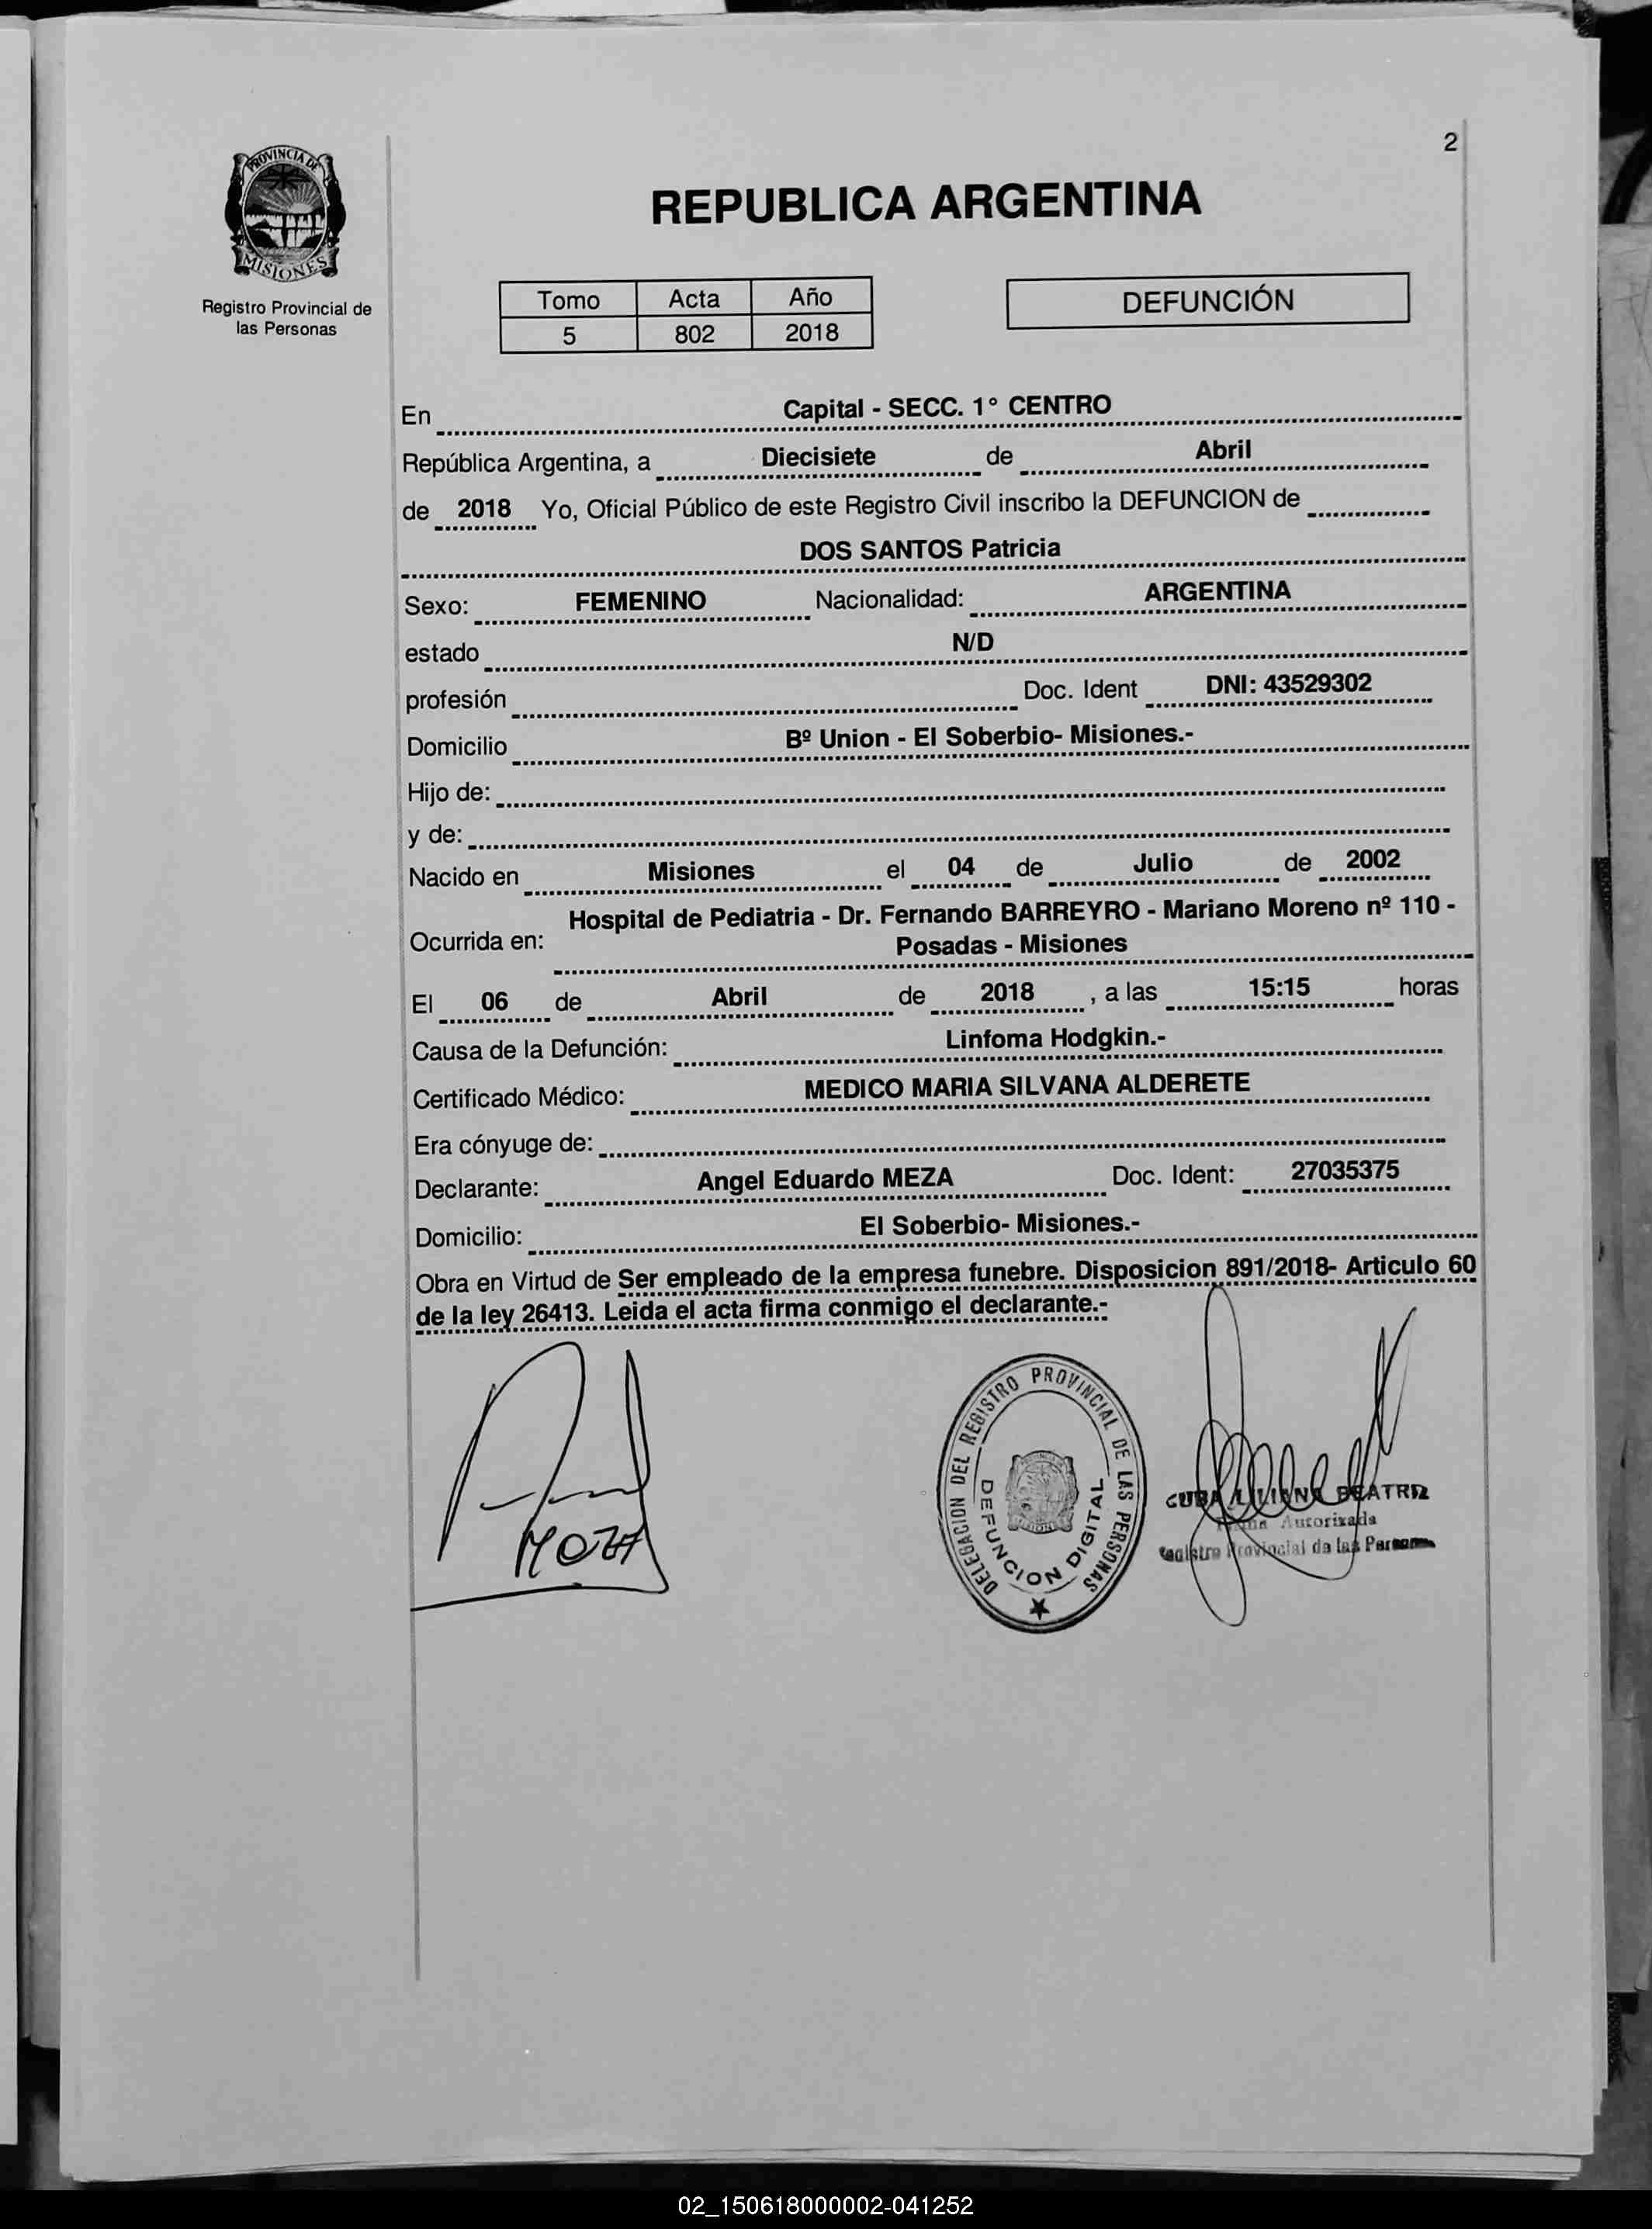 2
PROVINCIA DE
MISIONES
Registro Provincial de
las Personas
REPUBLICA ARGENTINA
Tomo Acta Año
5 802 2018
DEFUNCIÓN
En Capital - SECC. 1° CENTRO
República Argentina, a Diecisiete de Abril
de 2018 Yo, Oficial Público de este Registro Civil inscribo la DEFUNCION de
DOS SANTOS Patricia
Sexo: FEMENINO Nacionalidad: ARGENTINA
estado N/D
profesión Doc. Ident DNI: 43529302
Domicilio Bº Union - El Soberbio- Misiones.-
Hijo de:
y de:
Nacido en Misiones el 04 de Julio de 2002
Ocurrida en: Hospital de Pediatria - Dr. Fernando BARREYRO - Mariano Moreno nº 110 -
Posadas - Misiones
El 06 de Abril de 2018 , a las 15:15 horas
Causa de la Defunción: Linfoma Hodgkin.-
Certificado Médico: MEDICO MARIA SILVANA ALDERETE
Era cónyuge de:
Declarante: Angel Eduardo MEZA Doc. Ident: 27035375
Domicilio: El Soberbio- Misiones.-
Obra en Virtud de Ser empleado de la empresa funebre. Disposicion 891/2018- Articulo 60
de la ley 26413. Leida el acta firma conmigo el declarante.-
DELEGACION DEL REGISTRO PROVINCIAL DE LAS PERSONAS
DEFUNCION DIGITAL
CUBA LILIANA BEATRIZ
Firma Autorizada
Registro Provincial de las Personas
02_150618000002-041252